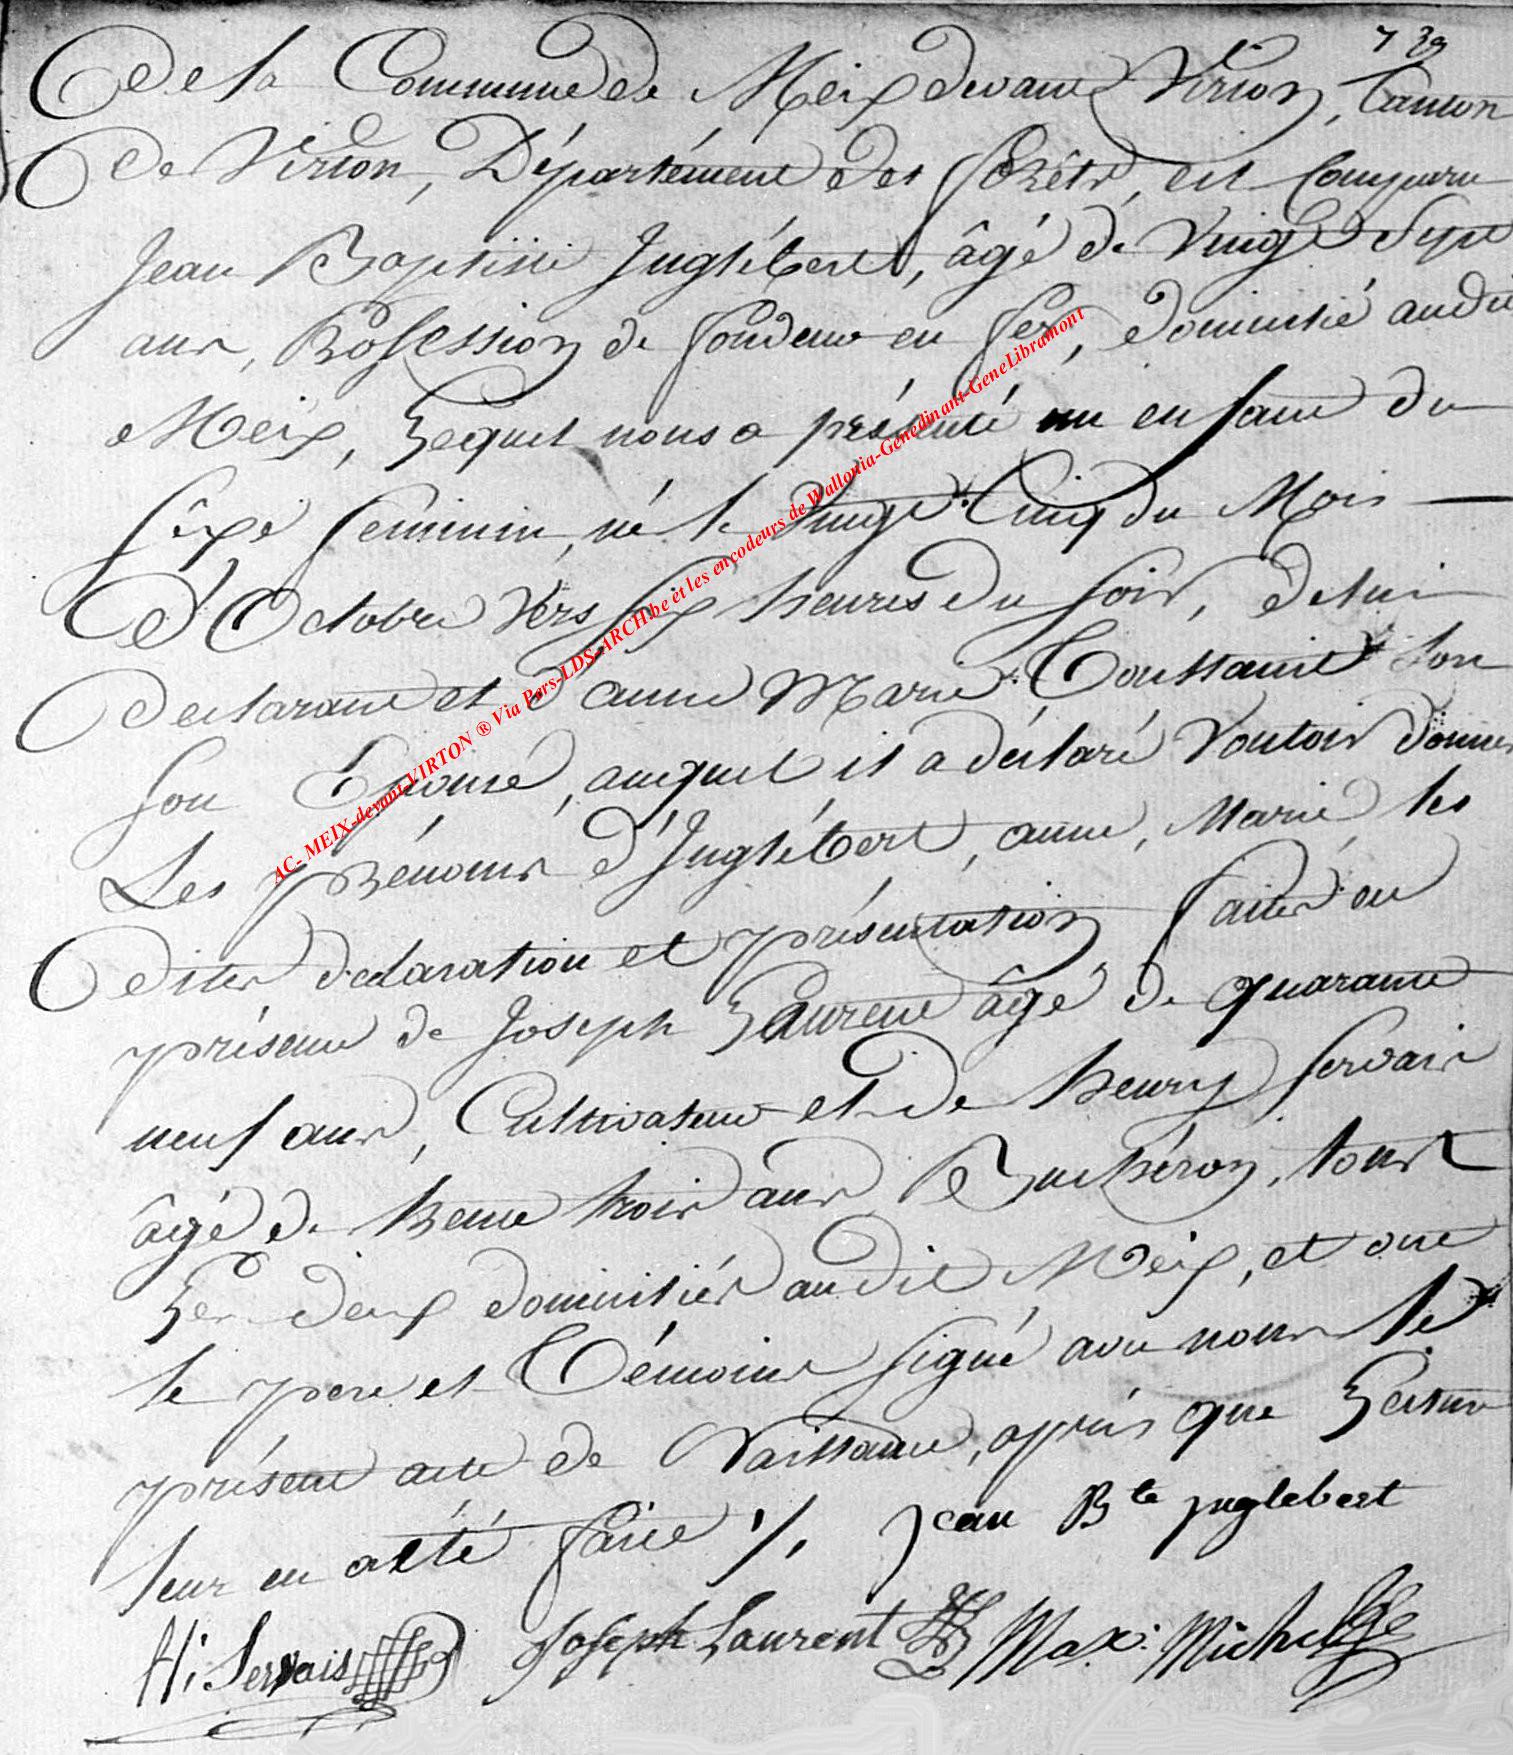 7 39
De la Commune de Meix devant Virton, Canton
De Virton, Département des forêts, est Comparu
Jean Baptiste Inglébert, âgé de Vingt Sept
ans, Profession de fondeur en fer, domicilié audit
Meix, Lequel nous a présenté un enfant du
sexe feminin, né le Vingt Cinq du Mois
D'Octobre vers six heures du soir, de lui
Declarant et d'anne Marie Toussaint son
son Epouse, auquel il a déclaré Vouloir donner
Les prénoms d'Inglébert, anne, Marie, les
dites declaration et présentation faites en
présence de Joseph Laurent âgé de quarante
neuf ans, Cultivateur et de henry servais
âgé de trente trois ans Bucheron, tous
Les deux domiciliés audit Meix, et ont
le pere et Témoins signé avec nous le
présent acte de Naissance, après que Lecture
leur en a été faite ./.
Jean Bte jnglebert
H: Servais Joseph Laurent Max: Michel
AC- MEIX-devant-VIRTON ® Via Pers-LDS-ARCH.be et les encodeurs de Wallonia-Genedinant-GeneLibramont